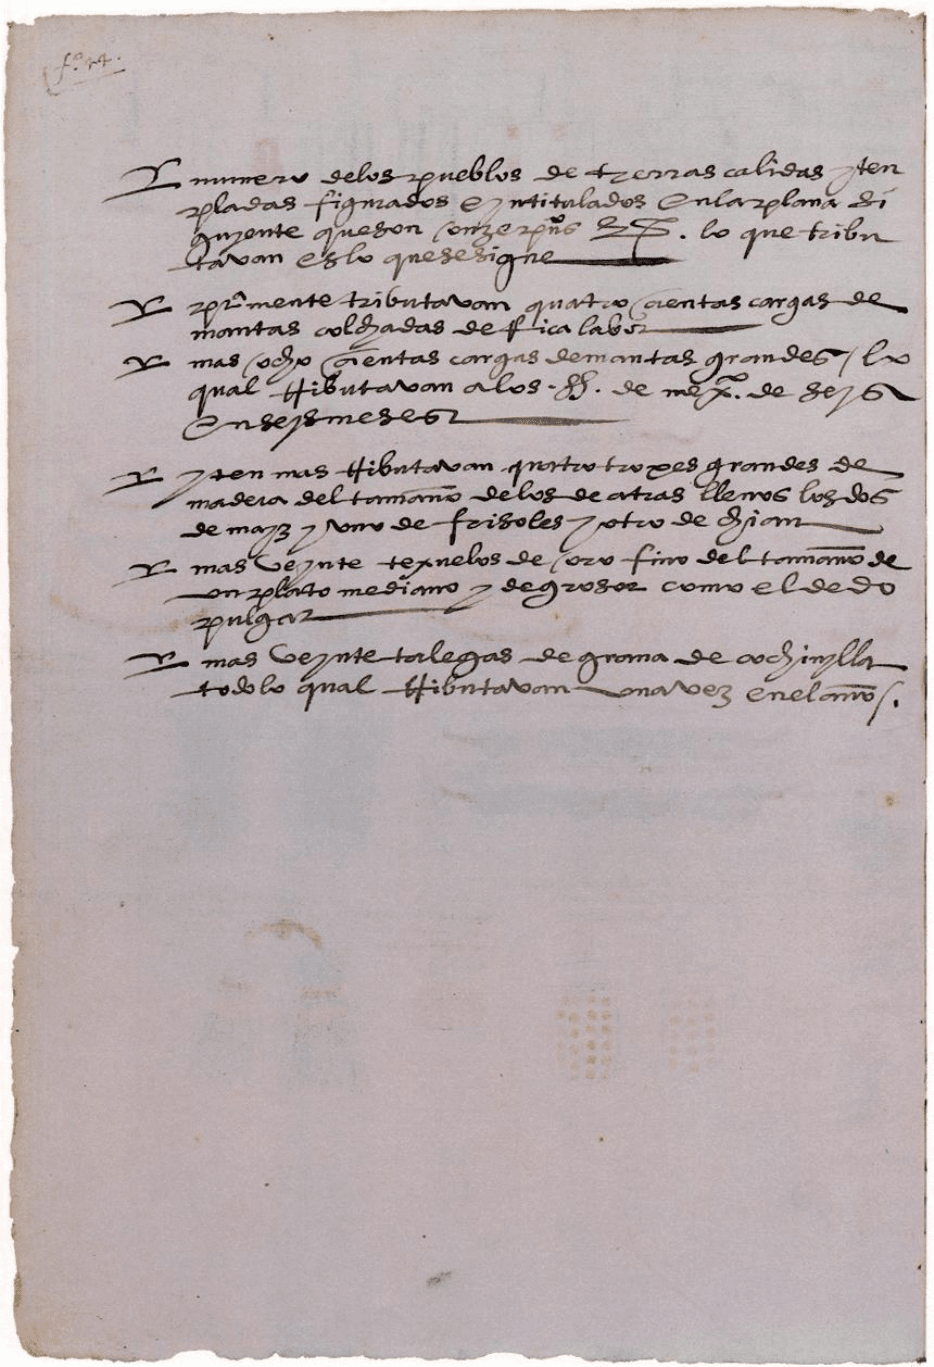 fo 44.
numero delos pueblos de tierras calidas y ten
pladas figurados E yntitulados En la plana si
guyente que son onze pueos. lo que tribu
tavan es lo que se sigue
primente tributavan quatro cientas cargas de
mantas colchadas de Rica labor
mas ocho cientas cargas de mantas grandes / lo
qual tributavan a los .SS. de mexco. de seys
En seys meses
yten mas tributavan quatro troxes grandes de
madera del tamaño de los de atras llenos los dos
de mayz y uno de frisoles y otro de chian
mas veynte texuelos de oro fino del tamaño de
un plato mediano y de grosor como el dedo
pulgar
mas veynte talegas de grana de cochinylla
todo lo qual tributavan una vez en el año /.